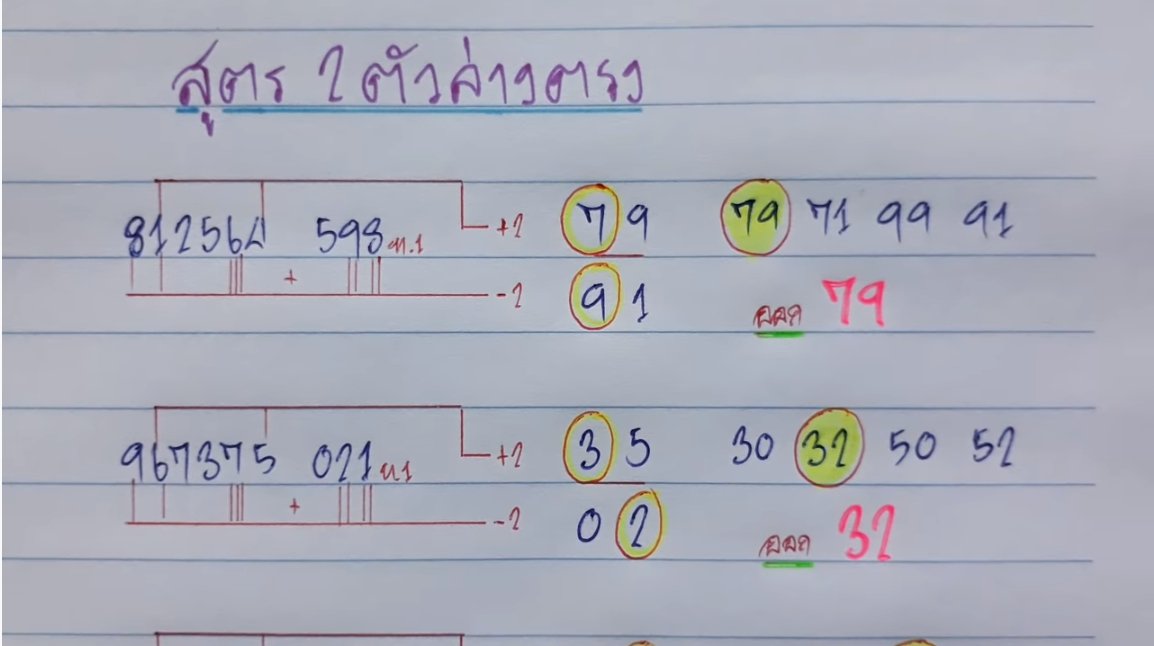 สูตร 2 ตัวล่างตรง
812564 598 ท.1 +2 79 79 71 99 91
+ -2 91 ออก 79
967375 021 ท1 +2 35 30 32 50 52
+ -2 02 ออก 32